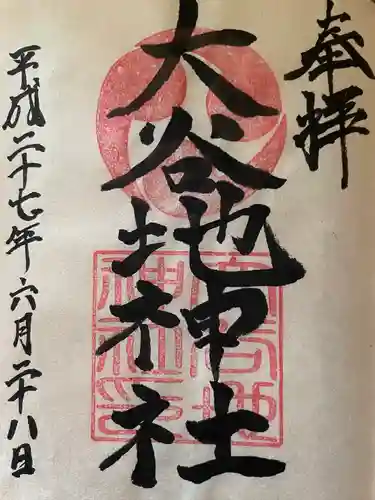 奉拝
大谷地神社
平成二十七年六月二十八日
大谷地神社印